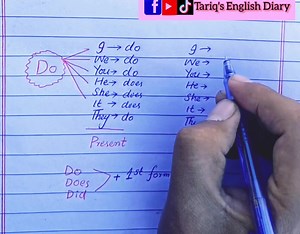 Tariq's English Diary
Do
I → do
We → do
You → do
He → does
She → does
It → does
They → do
Present
I →
We →
You →
He →
She →
It →
Do
Does
Did
+ 1st form